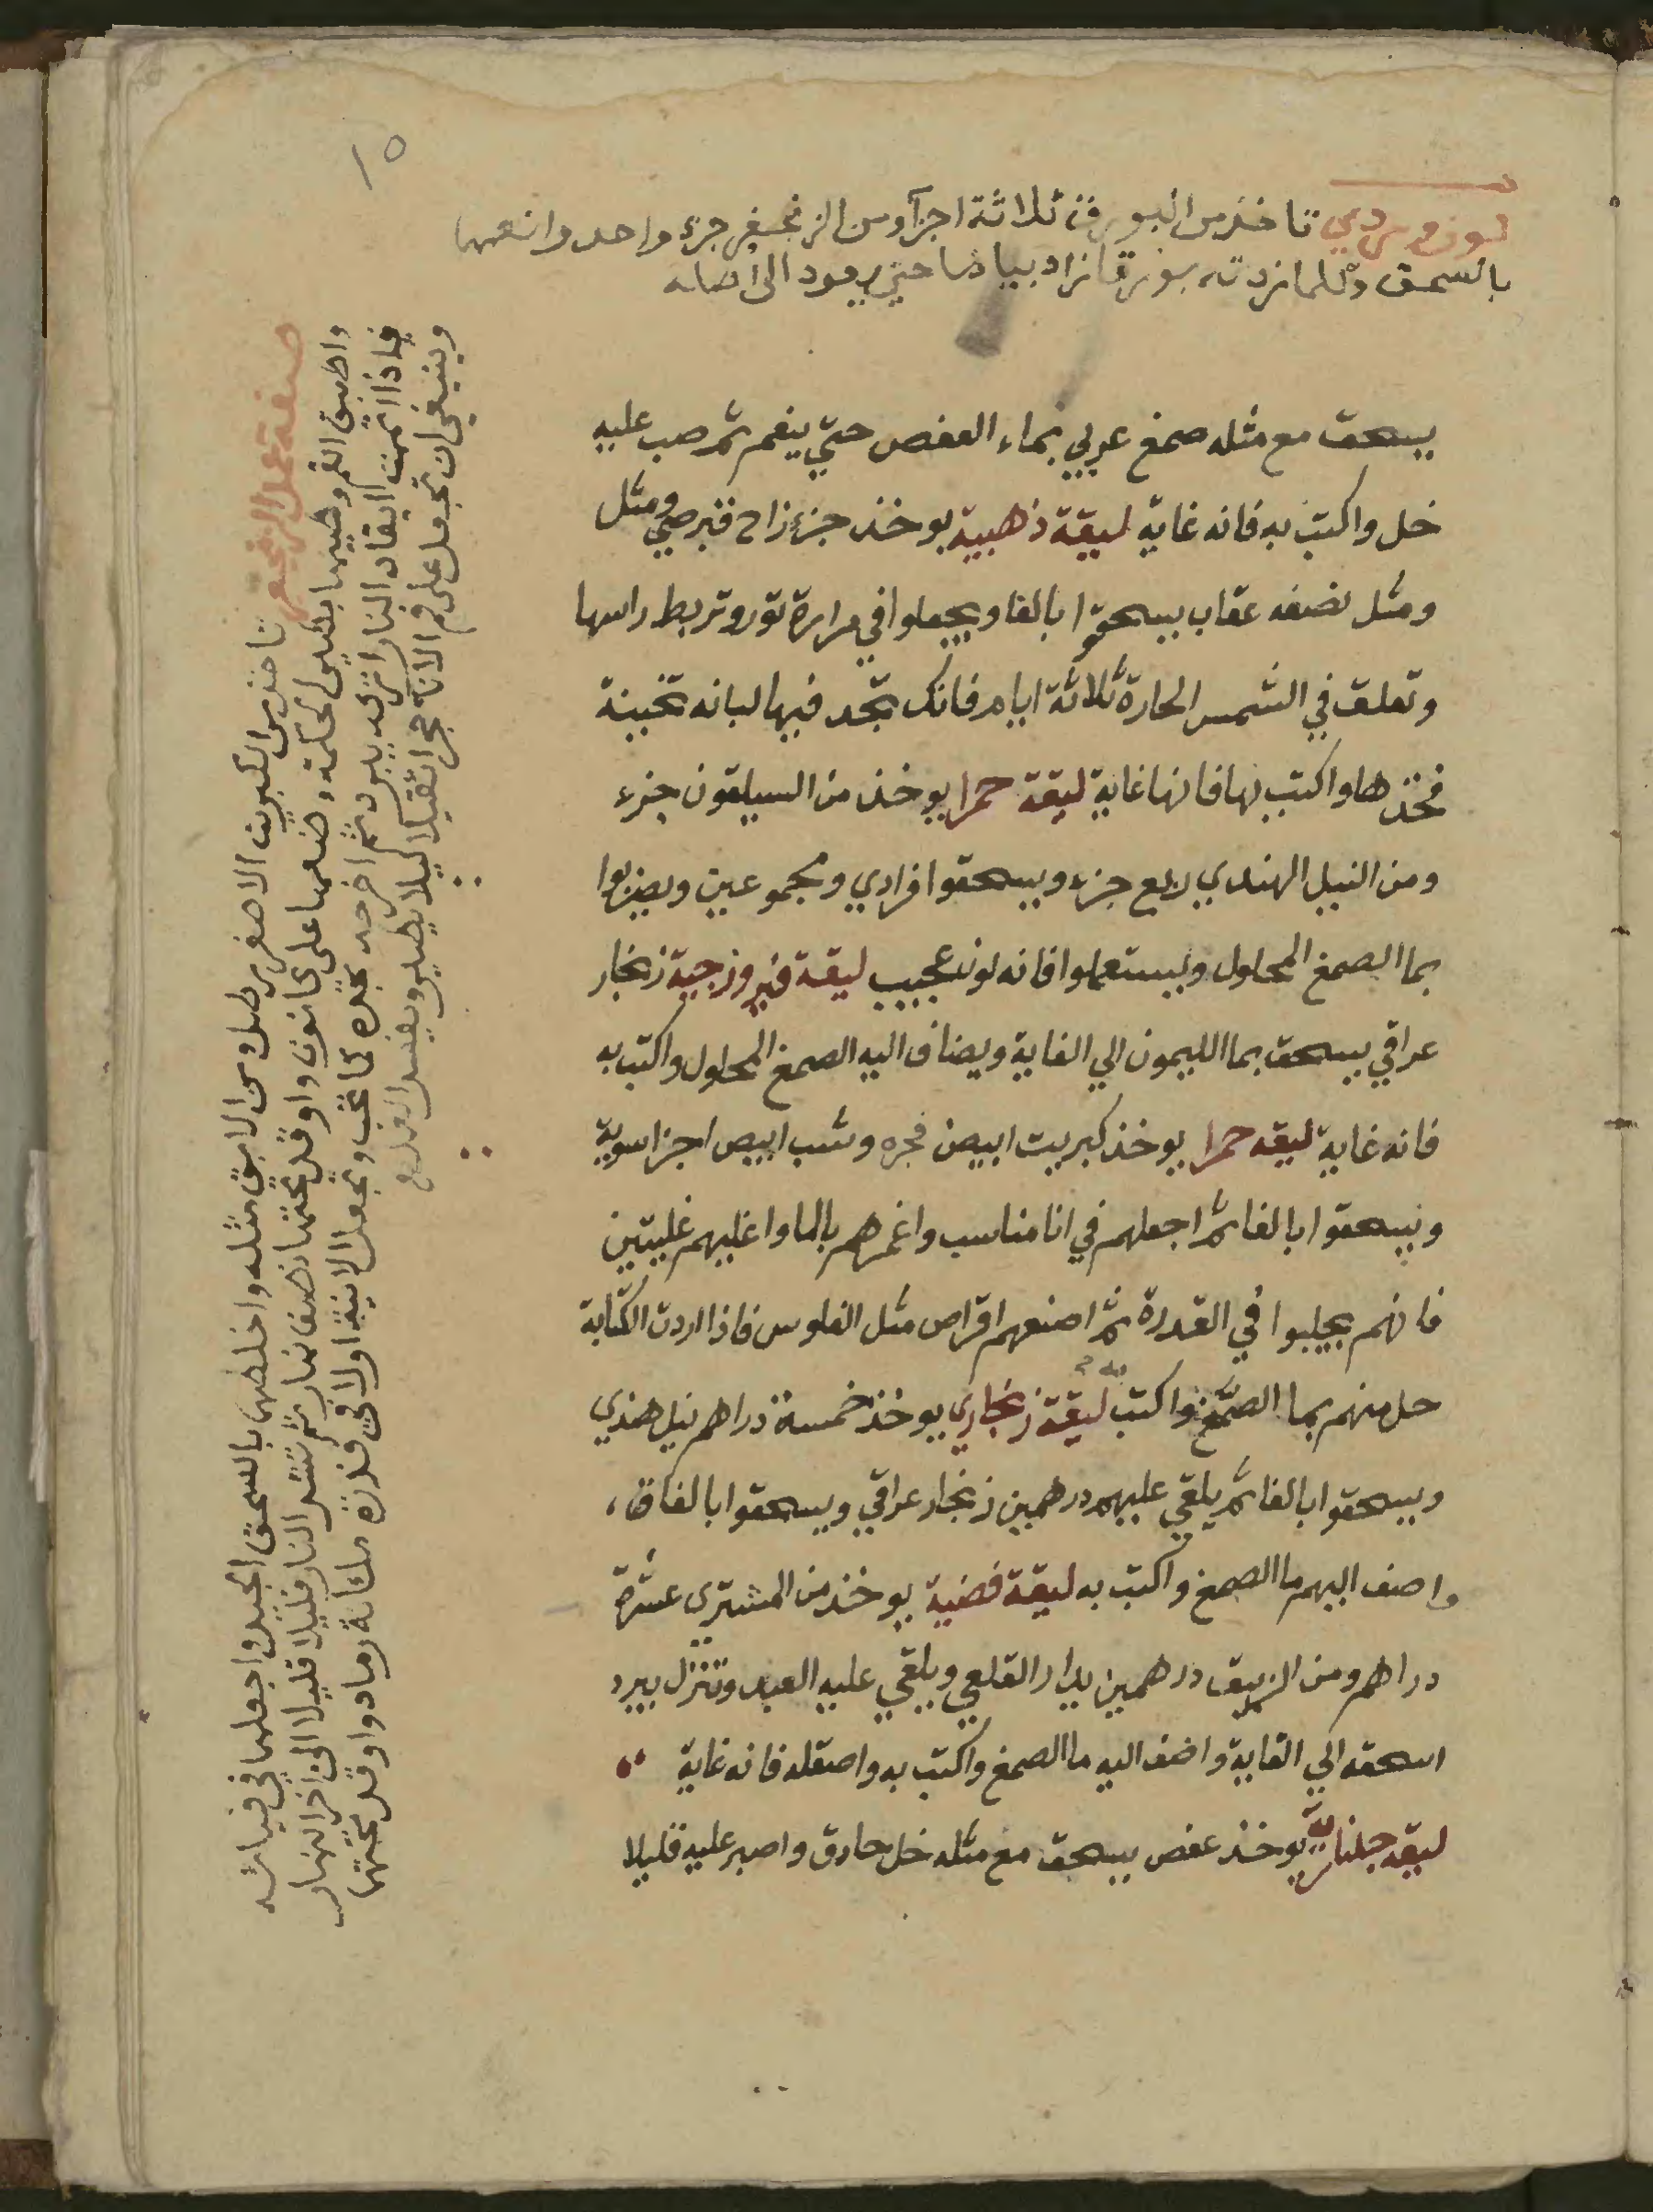 ١٥
لون وردي تاخذ من البورق ثلاثة اجزآ ومن الزنجفر جزء واحد وانعمهما
بالسحق وكلما زدته بورقا زاد بياضا حتى يعود الى اصله
يسحق مع مثله صمغ عربي بماء العفص حتي ينعم ثم صب عليه
خل واكتب به فانه غاية ليقة ذهبية يوخذ جزء زاج قبرصي ومثل
ومثل نصفه عقاب يسحقوا بالغا ويجعلوا في مرارة ثور وتربط راسها
وتعلق في الشمس الحارة ثلاثة ايام فانك تجد فيها لبانه تخينة
فخذها واكتب بها فانها غاية ليقة حمرا يوخذ من السيلقون جزء
ومن النيل الهندي ربع جزء ويسحقوا فرادي ومجموعين ويضربوا
بما الصمغ المحلول ويستعملوا فانه لون عجيب ليقة فيروزجية زنجار
عراقي يسحق بما الليمون الي الغاية ويضاف اليه الصمغ المحلول واكتب به
فانه غاية ليقه حمرا يوخذ كبريت ابيض فجره وشب ابيض اجزا سوية
ويسحقوا بالغا ثم اجعلهم في انا مناسب واغمرهم بالما واغليهم غليتين
فانهم يجلبوا في القدرة ثم اصنعهم اقراص مثل الفلوس فاذا اردت الكتابة
حل منهم بما الصمغ واكتب به ليقة زنجاري يوخذ خمسة دراهم نيل هندي
ويسحقوا بالغا ثم يلقي عليهم درهمين زنجار عراقي ويسحقوا بالغا
واضف اليهم ما الصمغ واكتب به ليقة فضية يوخذ من المشتري عشرة
دراهم ومن الزيبق درهمين يدار القلعي ويلقي عليه العبد وتنزل يبرد
اسحقه الي الغاية واضف اليه ما الصمغ واكتب به واصقله فانه غاية
ليقه جلنارية يوخذ عفص يسحق مع مثله خل حادق واصبر عليه قليلا
صفة عمل الزنجفر تاخذ من الكبريت الاصفر رطل ومن الابق مثله واخلطهما بالسحق الجيد واجعلهما في قياشه
واطبق الفم وطينها بطين الحكمة وضعها على كانون واوقد تحتها نصف نهار ثم تشد النار قليلا قليلا الى اخر النهار
فاذا اتممت ايقاد النار اتركه يبرد ثم اخرجه تجده كما تحب وتجعل الانية اولا في قدرة ملآنة رماد واوقد تحتها
وينبغي ان تجعل على فم الانآء حجرا ثقيلا كيلا يطير ويفسد العمل